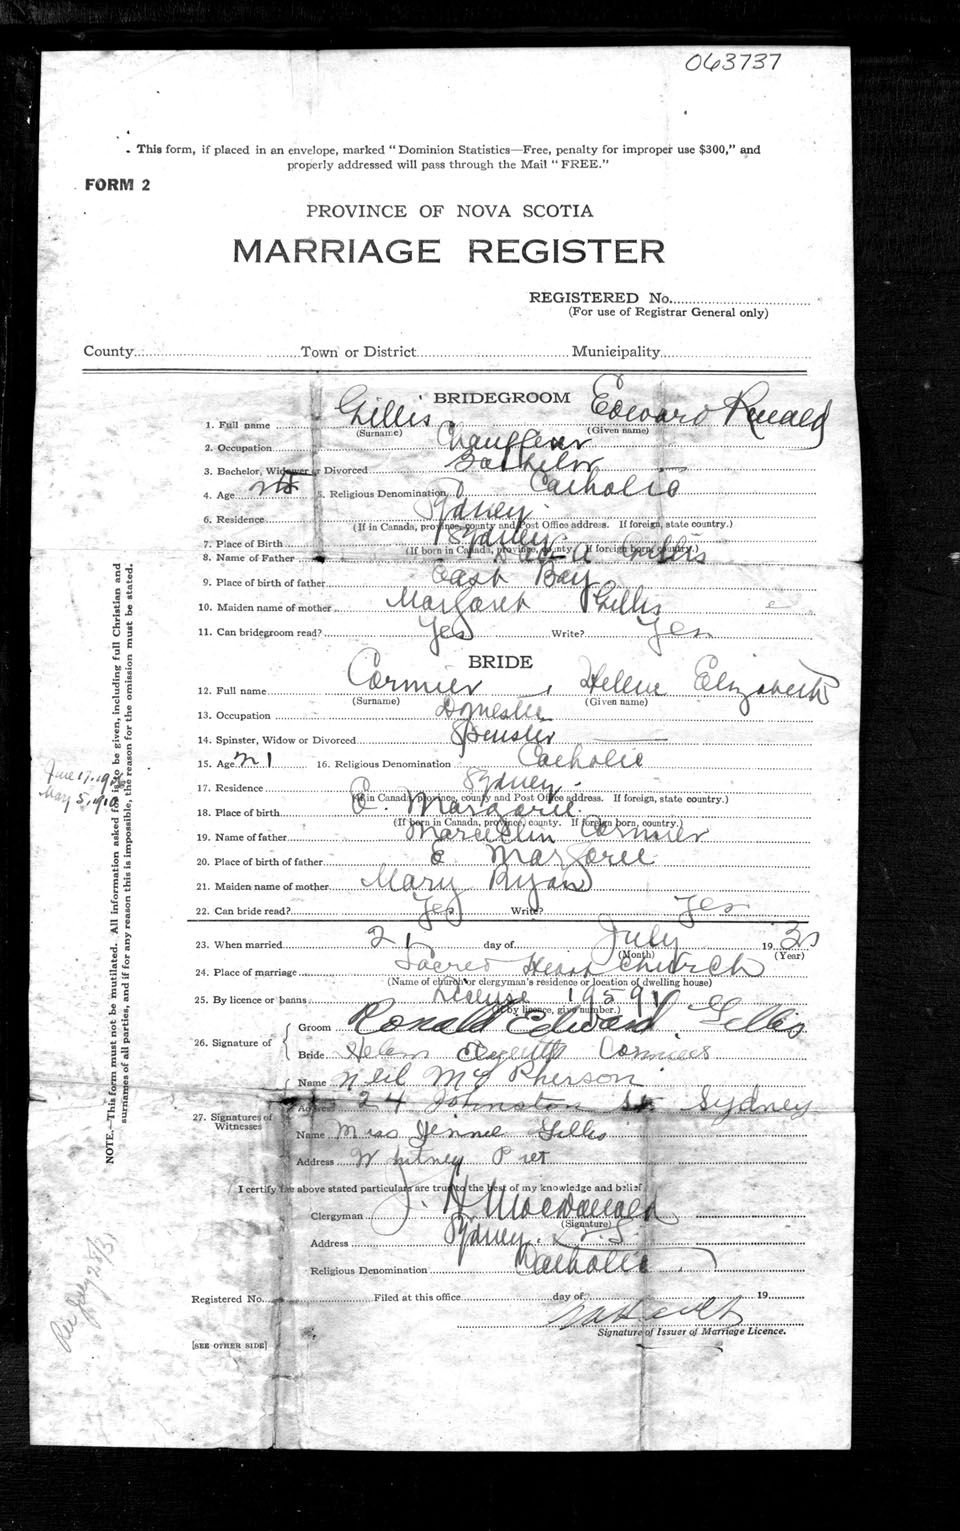 063737
This form, if placed in an envelope, marked "Dominion Statistics—Free, penalty for improper use $300," and
properly addressed will pass through the Mail "FREE."
FORM 2
PROVINCE OF NOVA SCOTIA
MARRIAGE REGISTER
REGISTERED No.
(For use of Registrar General only)
County Town or District Municipality
BRIDEGROOM
1. Full name Gillis Edward Ronald
(Surname) (Given name)
2. Occupation Chauffeur
3. Bachelor, Widower or Divorced Bachelor
4. Age 5. Religious Denomination Catholic
6. Residence Sydney
(If in Canada, province, county and Post Office address. If foreign, state country.)
7. Place of Birth Sydney
(If born in Canada, province, county. If foreign born, country.)
8. Name of Father Gillis
9. Place of birth of father East Bay
10. Maiden name of mother Margaret Gillis
11. Can bridegroom read? Yes Write? Yes
BRIDE
12. Full name Cormier, Helene Elizabeth
(Surname) (Given name)
13. Occupation Domestic
14. Spinster, Widow or Divorced Spinster
15. Age 21 16. Religious Denomination Catholic
17. Residence Sydney
(If in Canada, province, county and Post Office address. If foreign, state country.)
18. Place of birth E. Margaree
(If born in Canada, province, county. If foreign born, country.)
19. Name of father Marcellin Cormier
20. Place of birth of father E Margaree
21. Maiden name of mother Mary Ryan
22. Can bride read? Yes Write? Yes
23. When married 21 day of July 19
(Month) (Year)
24. Place of marriage Sacred Heart Church
(Name of church or clergyman's residence or location of dwelling house)
25. By licence or banns License 19591
(If by licence, give number.)
26. Signature of
Groom Ronald Edward Gillis
Bride Helen Cormier
27. Signatures of Witnesses
Name Neil McPherson
Address 24 Johnston St Sydney
Name Miss Jennie Gillis
Address Whitney Pier
I certify the above stated particulars are true to the best of my knowledge and belief.
Clergyman J. H MacDonald
(Signature)
Address Sydney. N.S.
Religious Denomination Catholic
Registered No. Filed at this office day of 19
Signature of Issuer of Marriage Licence.
[SEE OTHER SIDE]
NOTE.—This form must not be mutilated. All information asked for is to be given, including full Christian and
surnames of all parties, and if for any reason this is impossible, the reason for the omission must be stated.